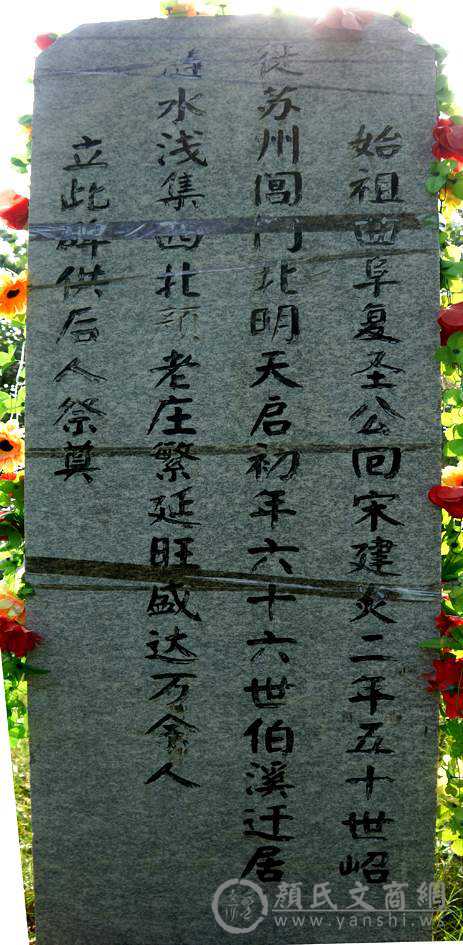 始祖曲阜复圣公回宋建炎二年五十世岹
从苏州阊门北明天启初年六十六世伯溪迁居
涟水浅集西北颜老庄繁延旺盛达万余人
立此碑供后人祭奠
顔氏文商網
www.yanshi.ws